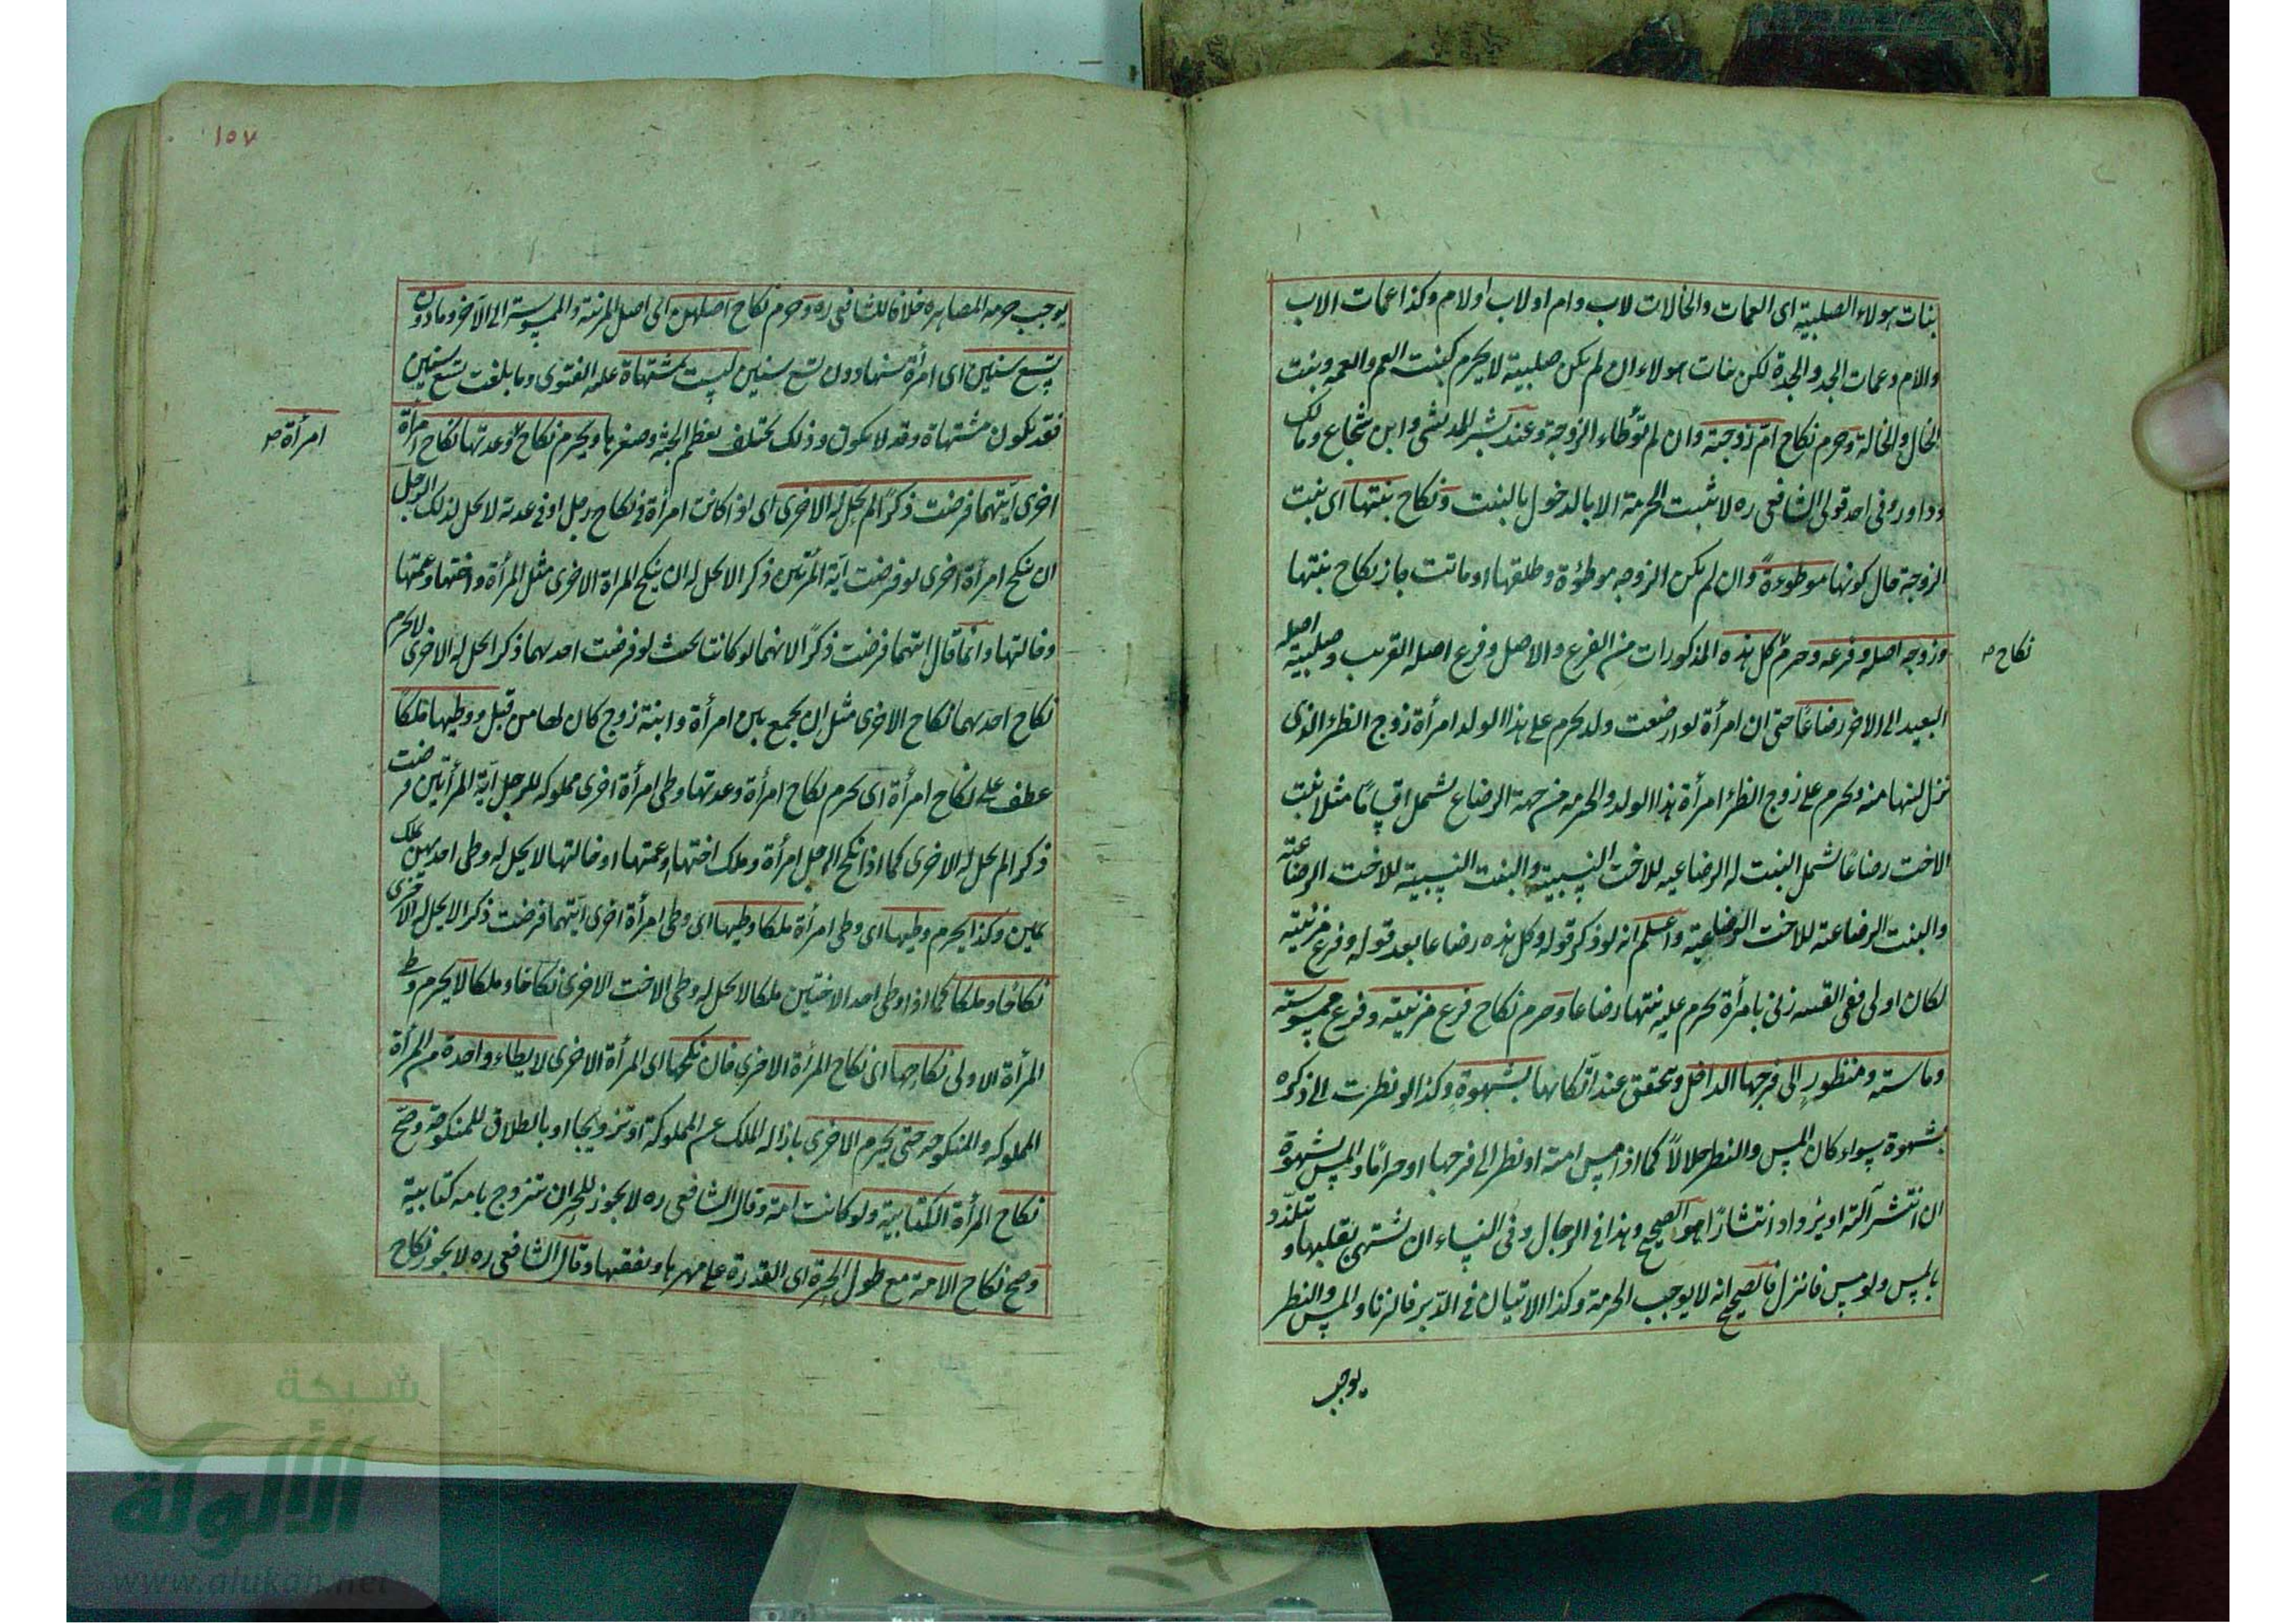 بنات هولاء الصلبية اى العمات والخالات لاب وام او لاب او لام وكذا عمات الاب
والام وعمات الجد والجدة لكن بنات هولاء ان لم يكن صلبية لا يحرم كبنت العم والعمه وبنت
الخال والخالة وحرم نكاح ام زوجته وان لم توطاء الزوجة وعند بشر المديشى وابن شجاع ومالك
وداود وفى احد قولى الشافعى ره لا تثبت الحرمة الا بالدخول بالبنت ونكاح بنتها اى بنت
الزوجة حال كونها موطوءة وان لم يكن الزوجه موطؤة وطلقها او ماتت جاز نكاح بنتها
وزوجه اصله وفرعه وحرم كل هذه المذكورات من الفرع والاصل وفرع اصله القريب وصلبية اصله
نكاح صح
البعيد الى الاخر رضاعا حتى ان امرأة لو ارضعت ولد يحرم على هذا الولد امرأة زوج الظئر الذى
نزل لبنها منه ويحرم على زوج الظئر امرأة هذا الولد والحرمه من جهة الرضاع تشمل اقساما مثلا بنت
الاخت رضاعا تشمل البنت له الرضاعيه للاخت النسبية والبنت النسبية للاخت الرضاعية
والبنت الرضاعته للاخت الرضاعية واعلم انه لو ذكر قوله وكل هذه رضاعا بعد قوله وفرع مزنيته
لكان اولى ففى القسه زنى بامرأة يحرم عليه بنتها رضاعا وحرم نكاح فرع مزنيته وفرع ممسوسته
وماسته ومنظور الى فرجها الداخل ويتحقق عند اتكائها بشهوة وكذا لو نظرت الى ذكره
بشهوة سواء كان المس والنظر حلالا كما اذا مس امته او نظر الى فرجها او حراما والمس بشهوة
ان انتشر آلته او يزداد انتشارا هو الصحيح وهذا فى الرجال وفى النساء ان تشتهى بقلبها وتتلذذ
بالمس ولو مس فانزل فالصحيح انه لا يوجب الحرمة وكذا الاتيان فى الدبر فالزنا والمس والنظر
يوجب
١٥٧
يوجب حرمه المصاهره خلافا للشافعى ره وحرم نكاح اصلهن اى اصل المزنية والممسوسة الى الآخر وما دون
تسع سنين اى امرأة سنها دون تسع سنين ليست بمشتهاة عليه الفتوى وما بلغت تسع سنين
فقد يكون مشتهاة وقد لا يكون وذلك يختلف بعظم الجثة وصغرها ويحرم نكاح وعدتها نكاح امرأة
امرأة صح
اخرى ايتهما فرضت ذكرا لم يحل له الاخرى اى اذا كانت امرأة فى نكاح رجل او فى عدته لا يحل لذلك الرجل
ان ينكح امرأة اخرى لو فرضت اية المرأتين ذكر الا يحل له ان ينكح المراة الاخرى مثل المرأة واختها وعمتها
وخالتها وانما قال ايتهما فرضت ذكرا لانهما لو كانتا بحيث لو فرضت احديهما ذكر الحل له الاخرى لا يحرم
نكاح احديهما نكاح الاخرى مثل ان يجمع بين امرأة وابنة زوج كان لها من قبل ووطيها ملكا
عطف على نكاح امرأة اى يحرم نكاح امرأة وعدتها وطى امرأة اخرى مملوكه للرجل آية المرأتين فرضت
ذكر الم يحل له الاخرى كما اذا نكح الرجل امرأة وملك اختها او عمتها او خالتها لا يحل له وطى احديهن بملك
يمين وكذا يحرم وطيها اى وطى امرأة ملكا وطيها اى وطى امرأة اخرى ايتهما فرضت ذكر الا يحل له الاخرى
نكاحا وملكا كما اذا وطى احد الاختين ملكا لا يحل له وطى الاخت الاخرى نكاحا وملكا لا يحرم وطى
المرأة الاولى نكاحها اى نكاح المرأة الاخرى فان نكحها اى المرأة الاخرى لا يطاء واحدة من المرأة
المملوكه والمنكوحه حتى يحرم الاخرى بازاله الملك عن المملوكة او تزويجا او بالطلاق للمنكوحة وصح
نكاح المرأة الكتابية ولو كانت امة وقال الشافعى ره لا يجوز للحر ان يتزوج بامه كتابية
وصح نكاح الامة مع طول الحرة اى القدرة على مهرها ونفقتها وقال الشافعى ره لا يجوز نكاح
شبكة
الألوكة
www.alukah.net